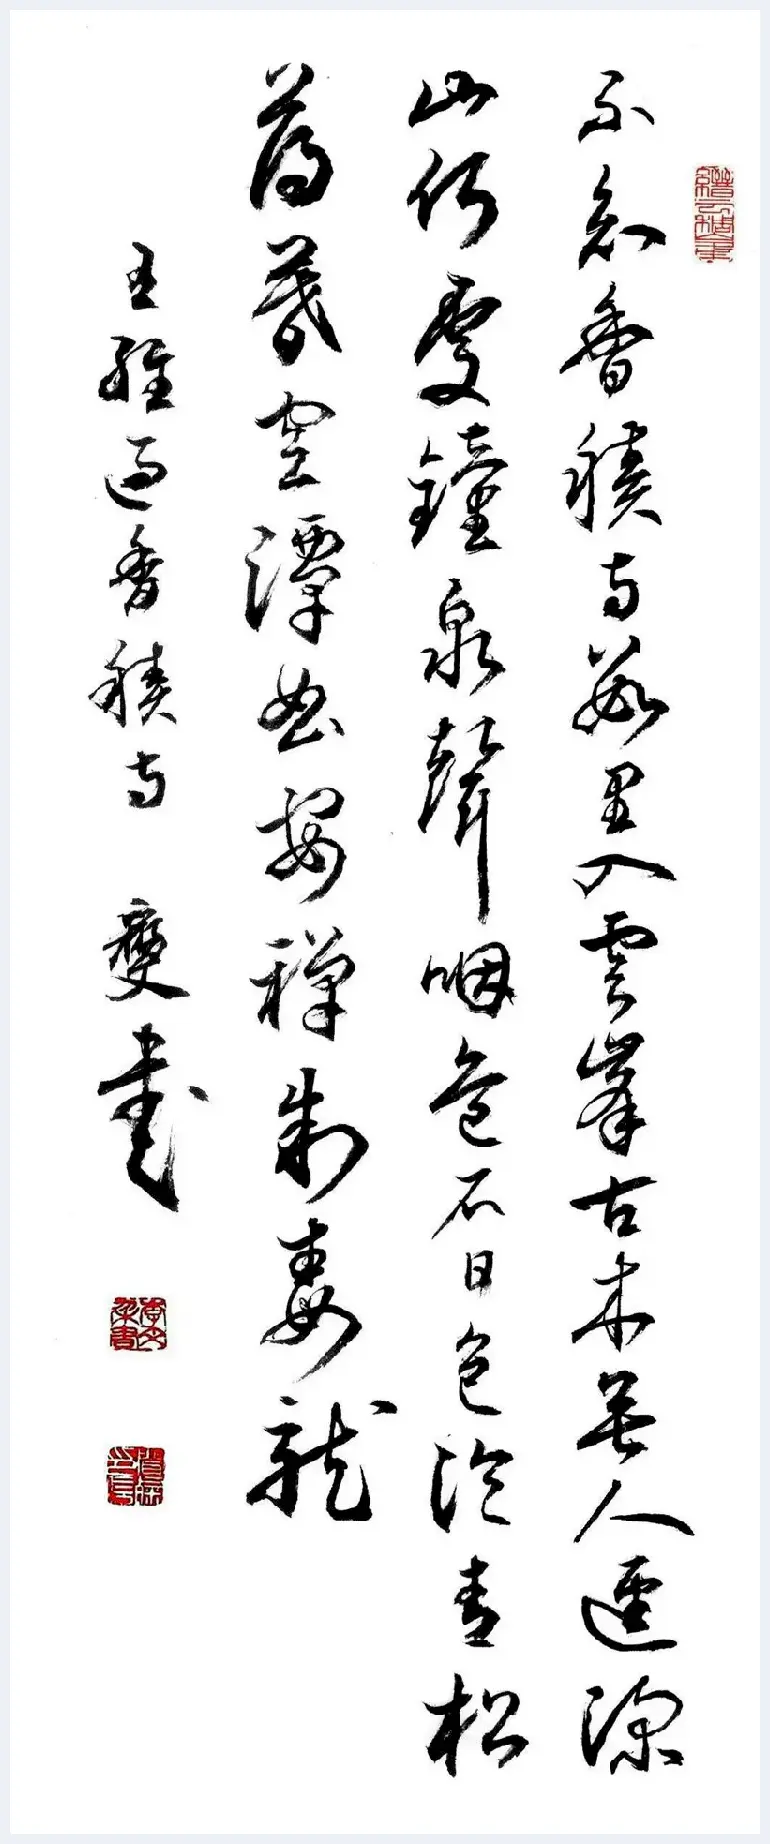 不知香積寺數里入雲峯古木無人逕深
山何處鐘泉聲咽危石日色冷青松
薄暮空潭曲安禪制毒龍
王維過香積寺 燮書